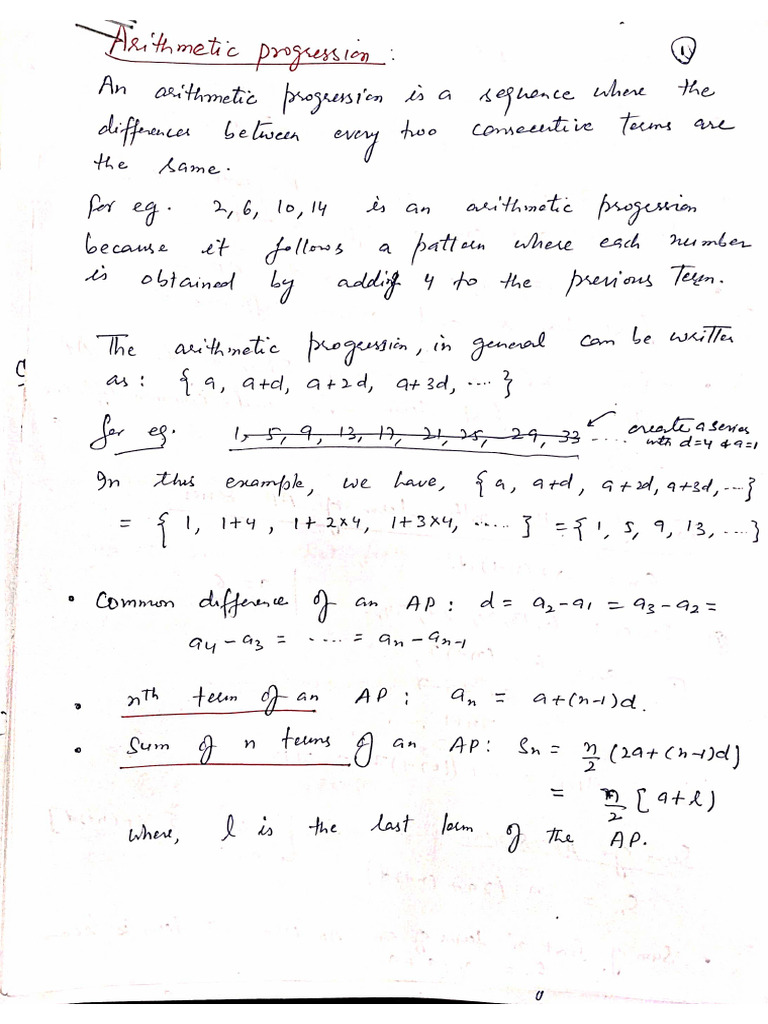 Arithmetic progression :
1
An arithmetic progression is a sequence where the
differences between every two consecutive terms are
the same.
for eg. 2, 6, 10, 14 is an arithmetic progession
because it follows a pattern where each number
is obtained by adding 4 to the previous Term.
The arithmetic progression, in general can be written
as : { a, a+d, a+2d, a+3d, .... }
for eg. 1, 5, 9, 13, 17, 21, 25, 29, 33 .... create a series
with d=4 & a=1
In this example, we have, { a, a+d, a+2d, a+3d, ...}
= { 1, 1+4, 1+2×4, 1+3×4, ..... } = { 1, 5, 9, 13, ...}
• Common difference of an AP : d = a2-a1 = a3-a2 =
a4-a3 = ..... = an-an-1
• nth term of an AP : an = a+(n-1)d.
• Sum of n terms of an AP : Sn = n/2 (2a+(n-1)d]
= n/2 [a+l)
where, l is the last term of the AP.